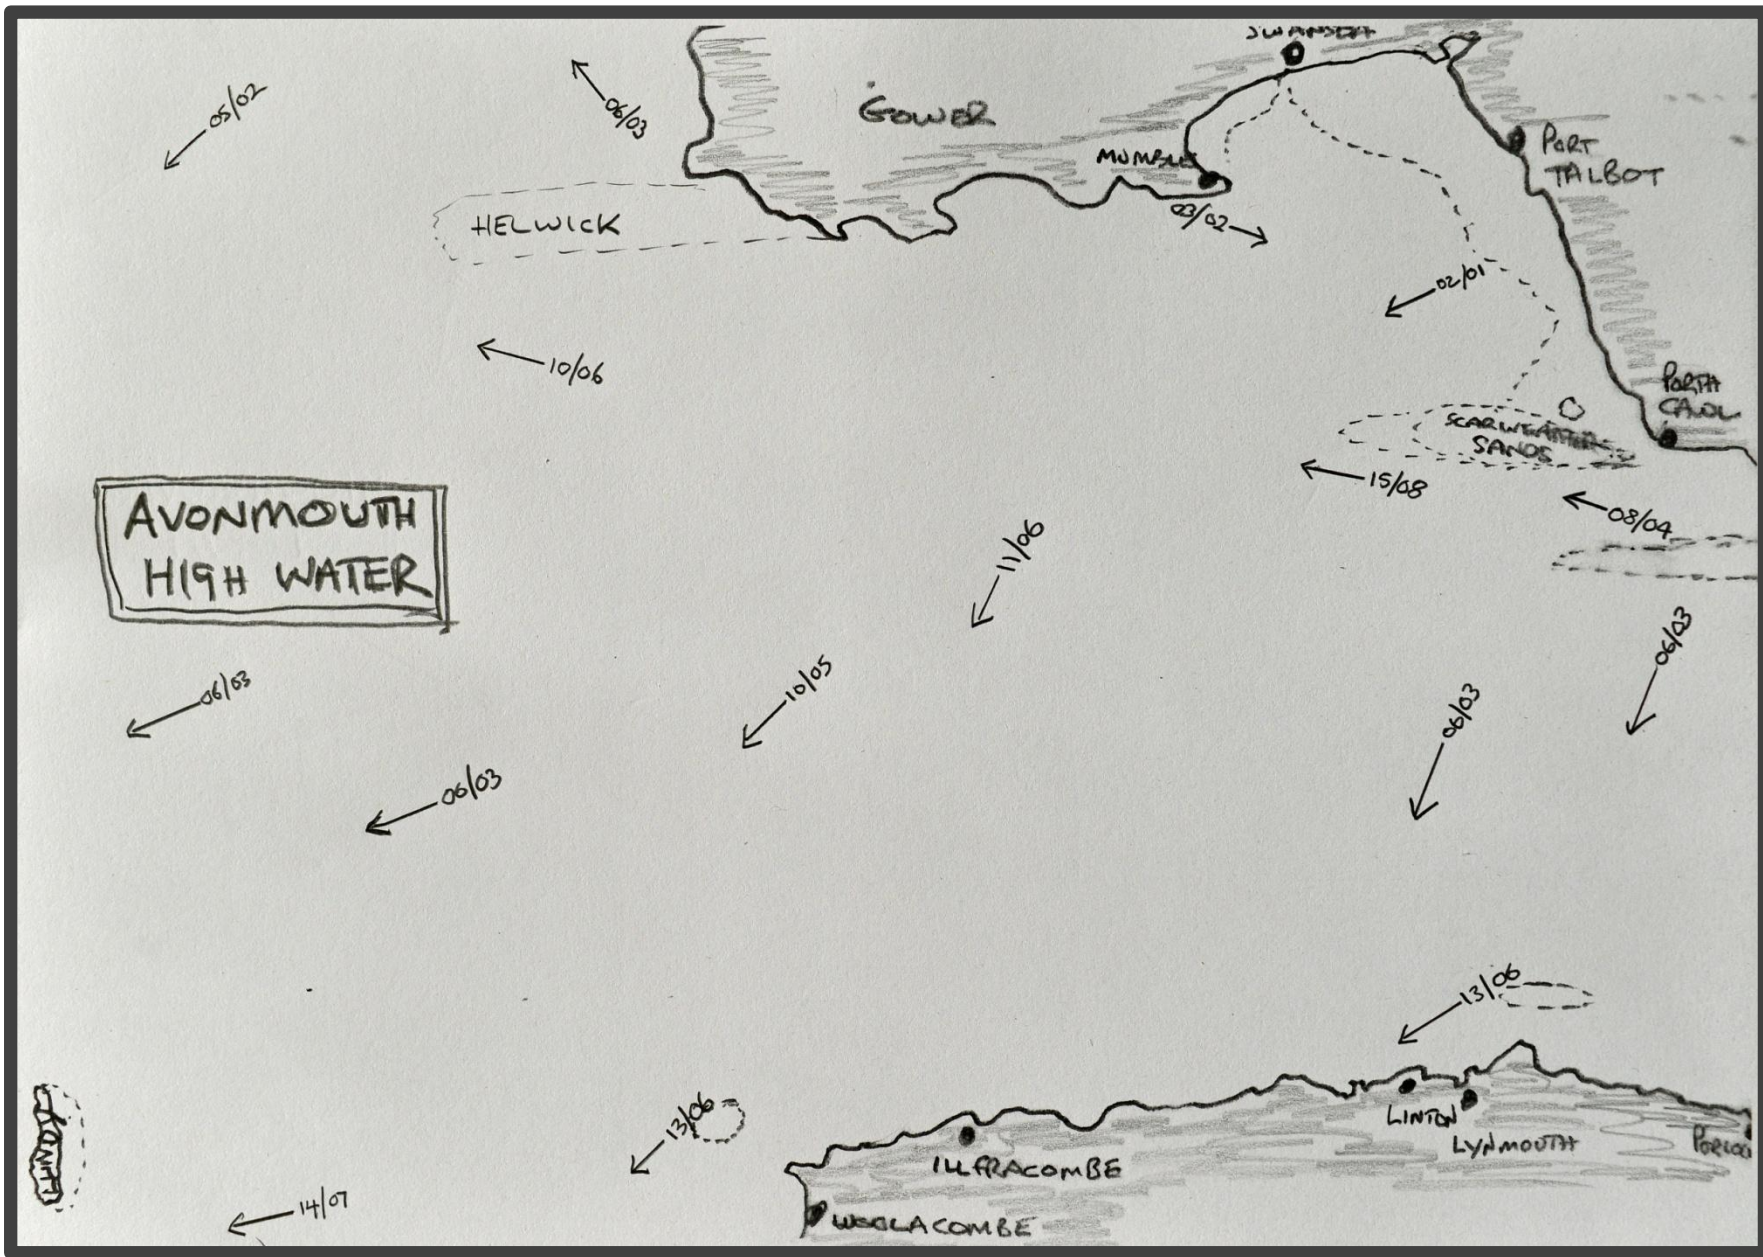 SWANSEA
05/02
06/03
GOWER
MUMBLES
PORT
TALBOT
HELWICK
03/02
02/01
10/06
PORTH
CAWL
SCARWEATHER
SANDS
15/08
08/04
AVONMOUTH
HIGH WATER
11/06
06/03
06/03
10/05
06/03
06/03
13/06
13/06
LINTON
LYNMOUTH
PORLOC
ILLFRACOMBE
14/07
WOOLACOMBE